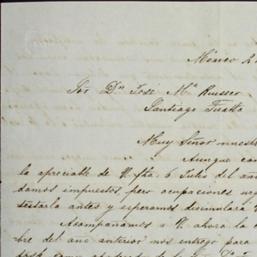 Mexico 2
Sor Dn José Ma
Santiago Tuxtla
Muy Señor nuestro
Aunque con
la apreciable de V. fha. 6 Julio del año
damos impuestos pero ocupaciones urg
testarla antes y esperamos disimulara
Acompañamos a V. ahora la c
bre del ano anterior nos entrego para